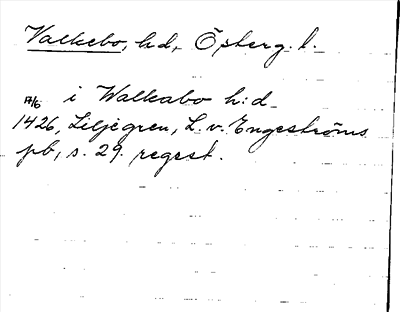 Valkebo, hd, Österg. l.
17/6 i Walkabo h:d
1426, Liljegren, L. v. Engeströms
pb, s. 29. regest.